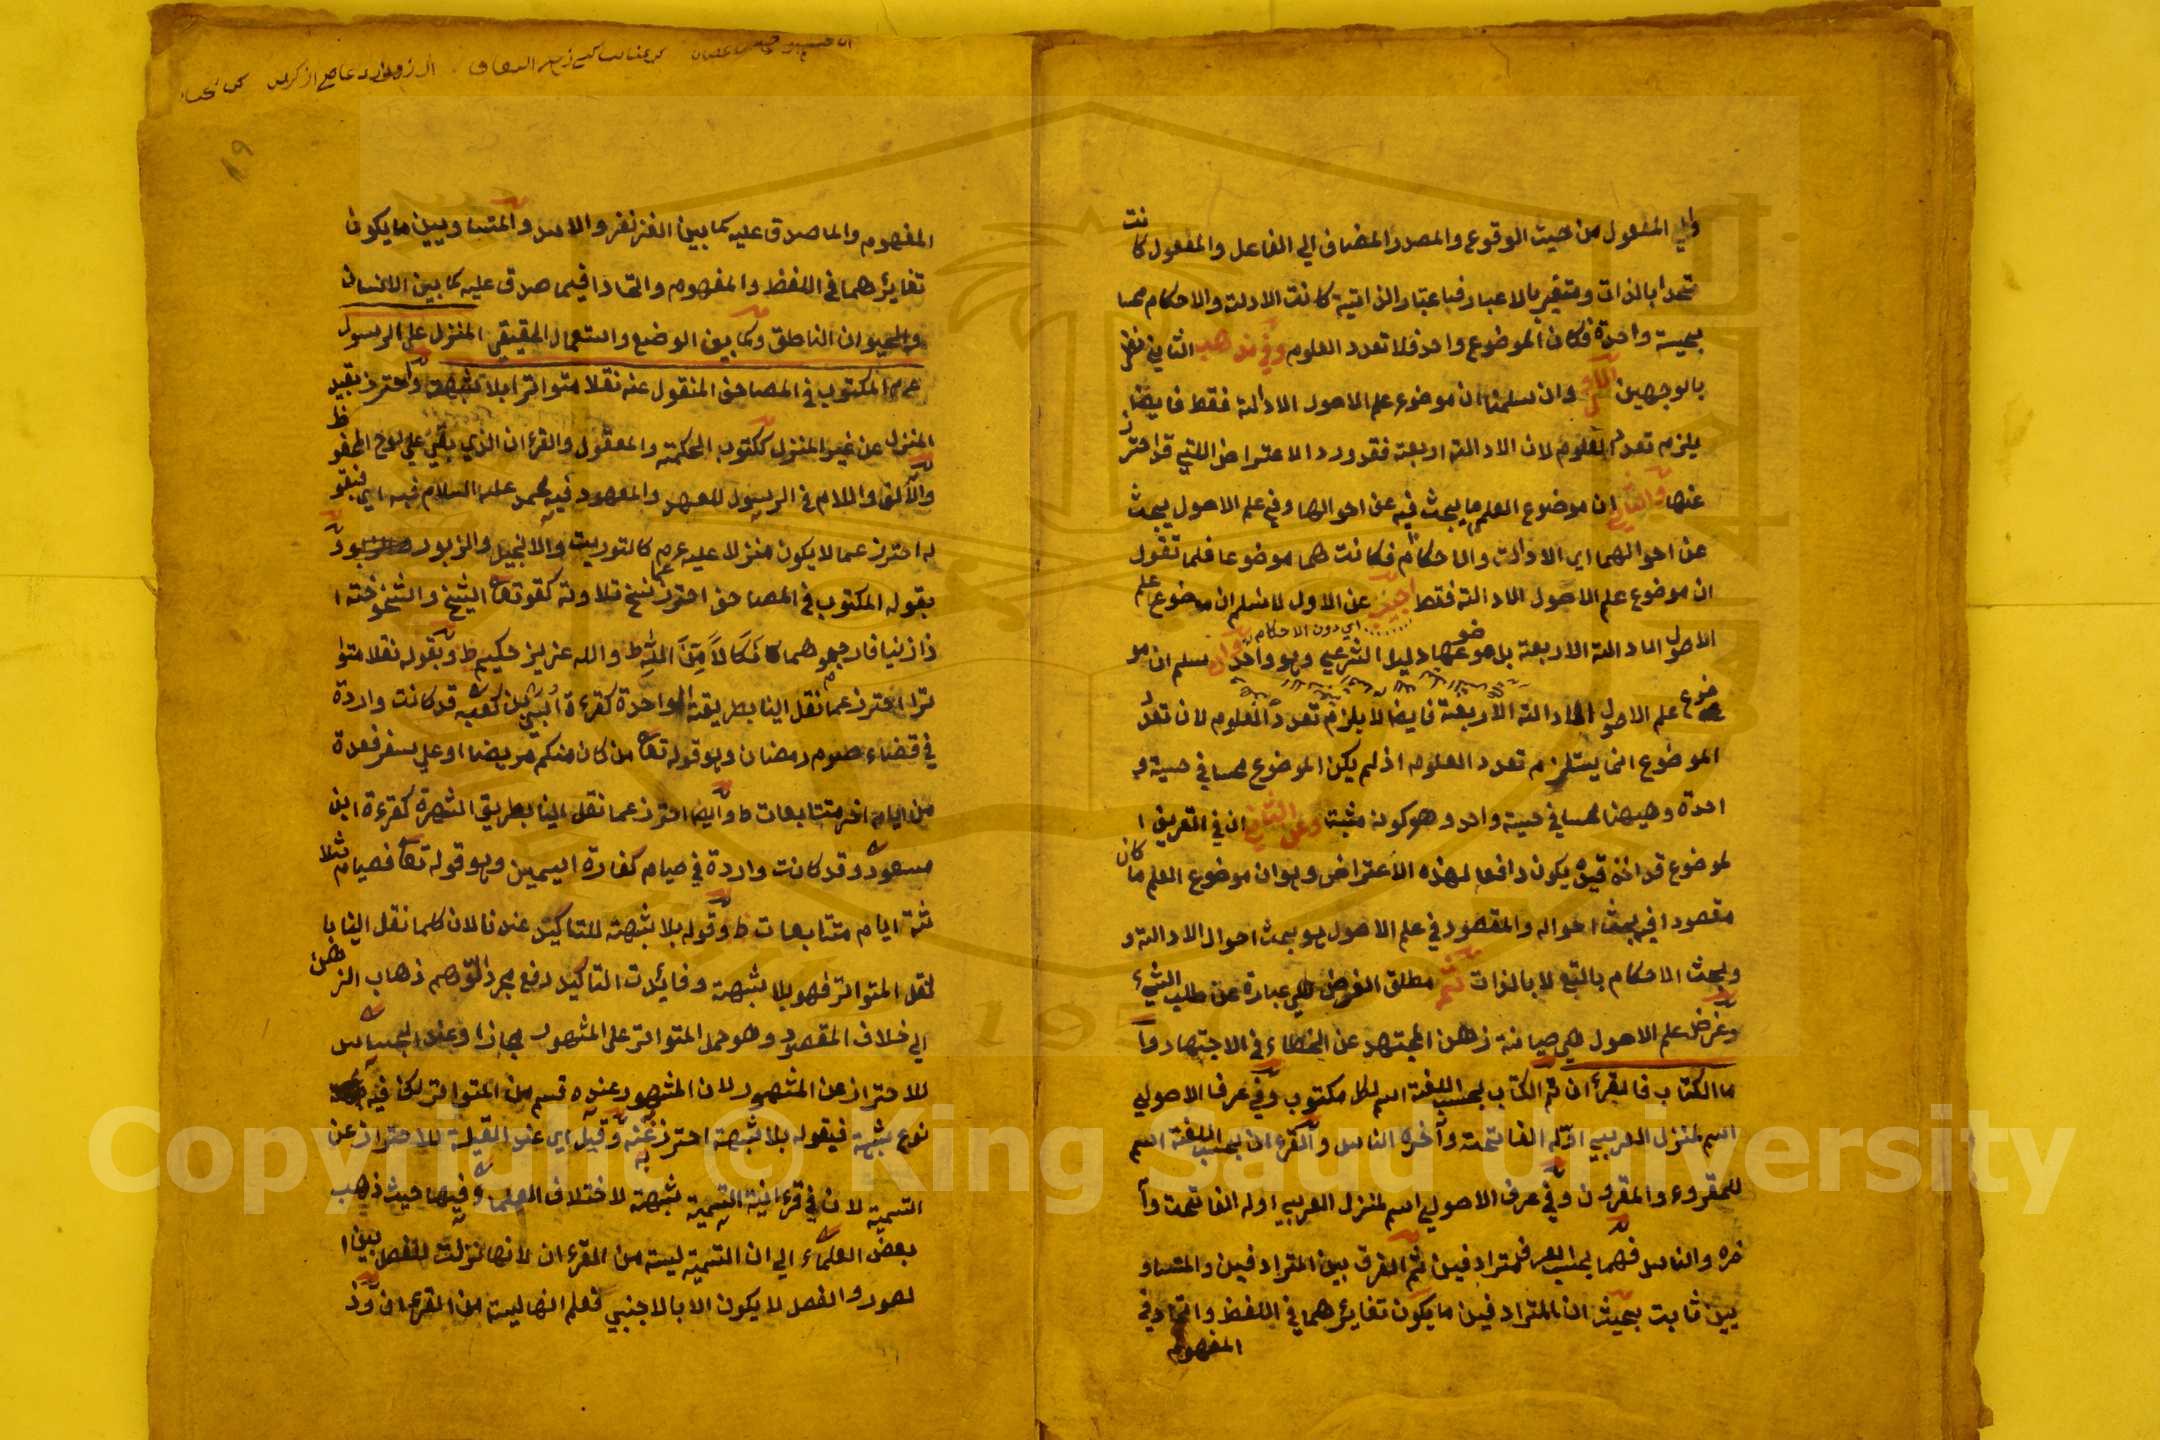 والي المفعول من حيث الوقوع والمصدر المضاف الي الفاعل والمفعول كانت
متحدا بالذات ومتغير بالاعبار فباعتبار الذاتية كانت الادلة والاحكام
بحيسة واحدة فكان الموضوع واحد فلا تعدد العلوم وفي مذهب الثاني نظر
بالوجهين الاول وان سلمنا ان موضوع علم الاصول الادالة فقط فايضا
يلزم تعدد العلوم لان الادالة اربعة فقد ورد الاعتراض اللتي قد احترز
عنها والثاني ان موضوع العلم ما يبحث فيه عن احوالها وفي علم الاصول يبحث
عن احوالهما اي الادالت والاحكام فكانت هما موضوعا فلما تقول
ان موضوع علم الاصول الادالة فقط اجيب عن الاول لا نسلم ان موضوع علم
اي دون الاحكام
الاصول الادالة الاربعة بل موضوعها دليل الشرعي وهو واحد وان سلم ان مو
ضوع علم الاصول الادالة الاربعة فايضا لا يلزم تعدد العلوم لان تعدد
الموضوع انما يستلزم تعدد العلوم اذ لم يكن الموضوع في حسية و
احدة وههنا في حسية واحد وهو كونه مثبتا وعن الثاني ان في التعريف ا
لموضوع قد اخذ قيد يكون دافعا لهذه الاعتراض وهو ان موضوع العلم ما كان
مقصودا في يبحث احواله والمقصود في علم الاصول هو بحث احوال الادالة و
وبحث الاحكام بالتبع لا بالذات ثم مطلق الغرض هي عبارة عن طلب الشيء
وغرض علم الاصول هي صيانة ذهن المجتهد عن الخطاء في الاجتهاد وا
ما الكتاب فالقرءان ثم الكتاب بحسب اللغة اسم لكل مكتوب وفي عرف الاصولي
اسم لمنزل العربي اوله الفاتحة وآخره الناس والقرءان بحسب اللغة اسم
للمقروء والمقرون وفي عرف الاصولي اسم لمنزل العربي اوله الفاتحة وآ
خره والناس فهما بحسب العرف مترادفين ثم الفرق بين المترادفين والمتساو
يين ثابت بحيث ان المترادفين ما يكون تغايرهما في اللفظ واتحاد في
المفهوم
١٩
المفهوم والما صدق عليه كما بين الغزنفر والاسد والمتساويين ما يكون
تغايرهما في اللفظ والمفهوم واتحادا فيما صدق عليه كما بين الانسان
والحيوان الناطق وكما بين الوضع واستعمال الحقيقي المنزل علي الرسول
المكتوب في المصاحف المنقول عنه نقلا متواترا بلا شبهة واحترز بقيد
المنزل عن غير المنزل ككتوب الحكمة والمعقول والقرءان الذي بقي علي لوح المحفوظ
والالف واللام في الرسول للعهد والمعهود فيه محمد عليه السلام فبه اي فبقو
له احترز عما لا يكون منزلا عليه كالتوريت والانجيل والزبور و
بقوله المكتوب في المصاحف احترز نسخ تلاوته كقوله تعا الشيخ والشيخوخته ا
ذا زنيا فارجموهما نكالا من الله ط والله عزيز حكيم ط وبقوله نقلا متوا
ترا احترز عما نقل الينا بطريقة الواحدة كقرءة ابي بن كعب قد كانت واردة
في قضاء صوم رمضان وهو قوله تعا من كان منكم مريضا او علي سفر فعدة
من ايام اخر متتابعات ط وايضا احترز عما نقل الينا بطريق الشهرة كقرءة ابن
مسعود وقد كانت واردة في صيام كفارة اليمين وهو قوله تعا فصيام ثلا
ثة ايام متتابعات ط وقوله بلا شبهة للتاكيد عندنا لان كلما نقل الينا با
لنقل المتواتر فهو بلا شبهة وفايدت التاكيد دفع مجرد توهم ذهاب الذهن
الي خلاف المقصود وهو حمل المتواتر علي المشهور مجازا وعند الجساس
للاحتراز عن المشهور لان المشهور عنده قسم من المتواتر لكن فيه
نوع شبهة فبقوله بلا شبهة احترز عنه وقيل اي عند القيلة للاحتراز عن
التسمية لان في قرءانية التسمية شبهة لاختلاف العلماء وفيها حيث ذهب
بعض العلماء الي ان التسمية ليسة من القرءان لانها نزلت للفصل بين ا
لصور والفصل لا يكون الا بالاجنبي فعلم انها ليسة من القرءان وذ
Copyright © King Saud University
1957